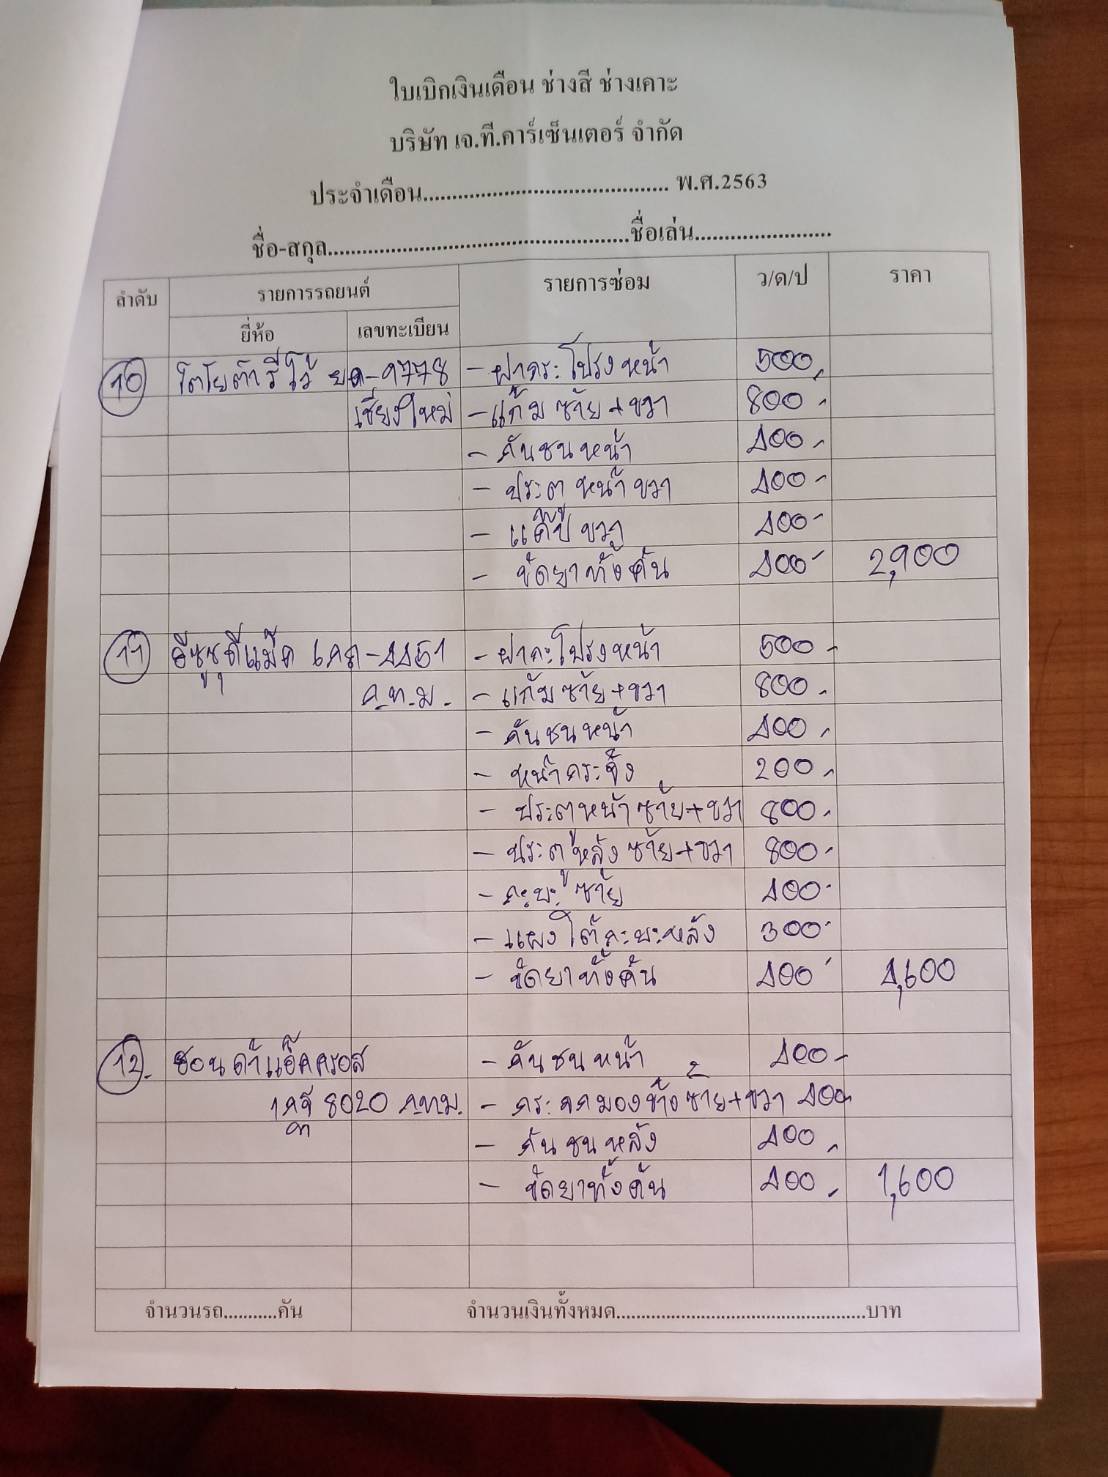 ใบเบิกเงินเดือน ช่างสี ช่างเคาะ
บริษัท เจ.ที.คาร์เซ็นเตอร์ จำกัด
ประจำเดือน.......................................... พ.ศ.2563
ชื่อ-สกุล....................................................ชื่อเล่น........................
ลำดับ รายการรถยนต์ รายการซ่อม ว/ด/ป ราคา
ยี่ห้อ เลขทะเบียน
10 โตโยต้า รีโว้ -9778 - ฝากระโปรงหน้า 500.-
เชียงใหม่ - แก้มซ้าย+ขวา 800.-
- กันชนหน้า 400.-
- ประตูหน้าขวา 400.-
- แค๊ปขวา 400.-
- ขัดยาทั้งคัน 400.- 2,900
11 อีซูซุดีแม็ค -4451 - ฝากะโปรงหน้า 500.-
ก.ท.ม. - แก้มซ้าย+ขวา 800.-
- กันชนหน้า 400.-
- หน้ากระจัง 200.-
- ประตูหน้าซ้าย+ขวา 800.-
- ประตูหลังซ้าย+ขวา 800.-
- กะบะซ้าย 400.-
- แผงใต้กะบะหลัง 300.-
- ขัดยาทั้งคัน 400.- 4,600
12. ฮอนด้าแอ๊คครอส - กันชนหน้า 400.-
8020 กทม. - กระจกมองข้างซ้าย+ขวา 400.-
- กันชนหลัง 400.-
- ขัดยาทั้งคัน 400.- 1,600
จำนวนรถ..........คัน จำนวนเงินทั้งหมด..................................................บาท